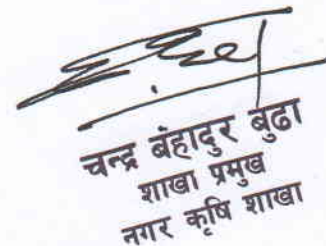 चन्द्र बहादुर बुढा
शाखा प्रमुख
नगर कृषि शाखा